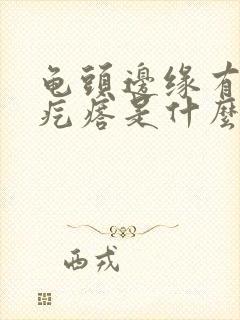 龟頭邊缘有
疙瘩是什麼
西戎